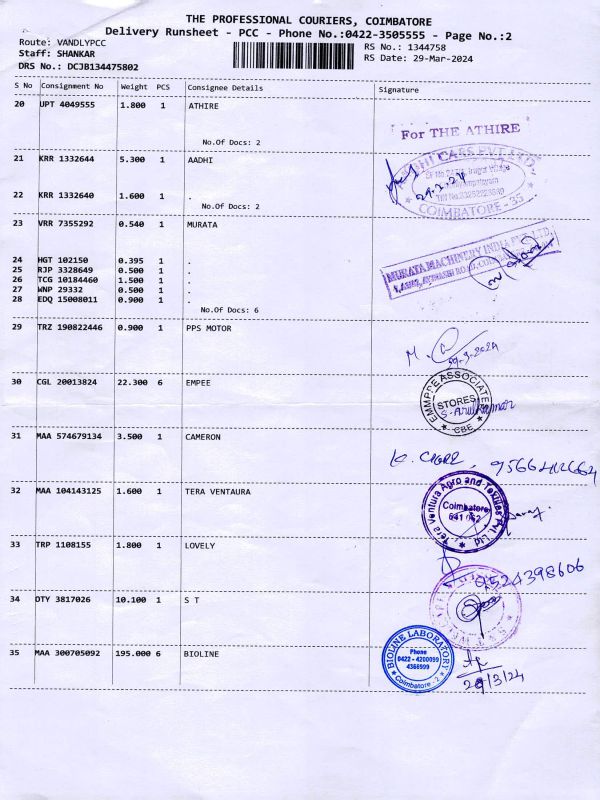 THE PROFESSIONAL COURIERS, COIMBATORE
Delivery Runsheet - PCC - Phone No.:0422-3505555 - Page No.:2
Route: VANDLYPCC
Staff: SHANKAR
DRS No.: DCJB134475802
RS No.: 1344758
RS Date: 29-Mar-2024
S No Consignment No Weight PCS Consignee Details Signature
20 UPT 4049555 1.800 1 ATHIRE
For THE ATHIRE
No.Of Docs: 2
21 KRR 1332644 5.300 1 AADHI
22 KRR 1332640 1.600 1 .
No.Of Docs: 2
COIMBATORE - 35
23 VRR 7355292 0.540 1 MURATA
MURATA MACHINERY INDIA PVT. LTD.
24 HGT 102150 0.395 1 .
25 RJP 3328649 0.500 1 .
26 TCG 10184460 1.500 1 .
27 WNP 29332 0.500 1 .
28 EDQ 15008011 0.900 1 .
No.Of Docs: 6
29 TRZ 190822446 0.900 1 PPS MOTOR
30 CGL 20013824 22.300 6 EMPEE
EMMPEE ASSOCIATES
STORES
CBE
31 MAA 574679134 3.500 1 CAMERON
32 MAA 104143125 1.600 1 TERA VENTAURA
Tera Ventura Agro and Textiles Pvt. Ltd
Coimbatore
641 062
33 TRP 1108155 1.800 1 LOVELY
9524398606
34 DTY 3817026 10.100 1 S T
35 MAA 300705092 195.000 6 BIOLINE
BIOLINE LABORATORY
Phone
0422 - 4200099
4368999
Coimbatore - 2
29/3/24